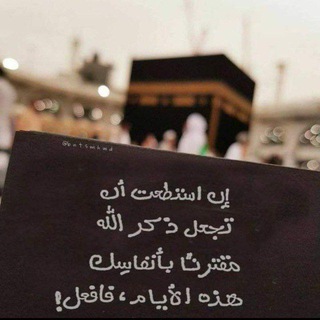 إن استطعت أن
تجعل ذكر الله
مقترنًا بأنفاسِك
هذه الأيام، فافعل!